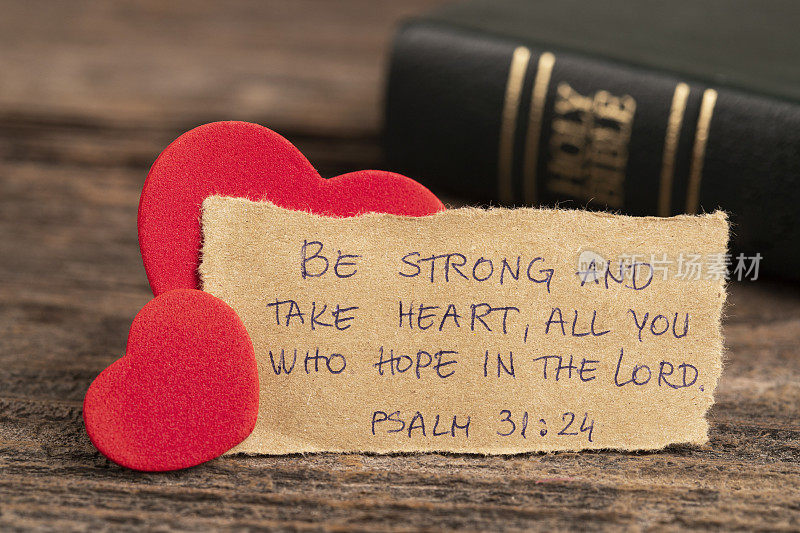 HOLY
BIBLE
BE STRONG AND
TAKE HEART, ALL YOU
WHO HOPE IN THE LORD.
PSALM 31:24
图虫创意